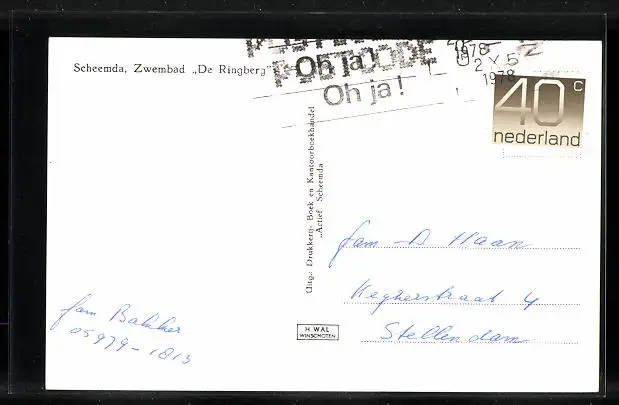 Scheemda, Zwembad „De Ringberg"
POSTCODE
Oh ja!
Oh ja!
1978
2 X 5
1978
40c
nederland
Uitg.: Drukkerij- Boek en Kantoorboekhandel
„Actief" Scheemda
fam - D Haan
Kegherstraat 4
Stellendam
fam Bakker
05979-1813
H. WAL
WINSCHOTEN